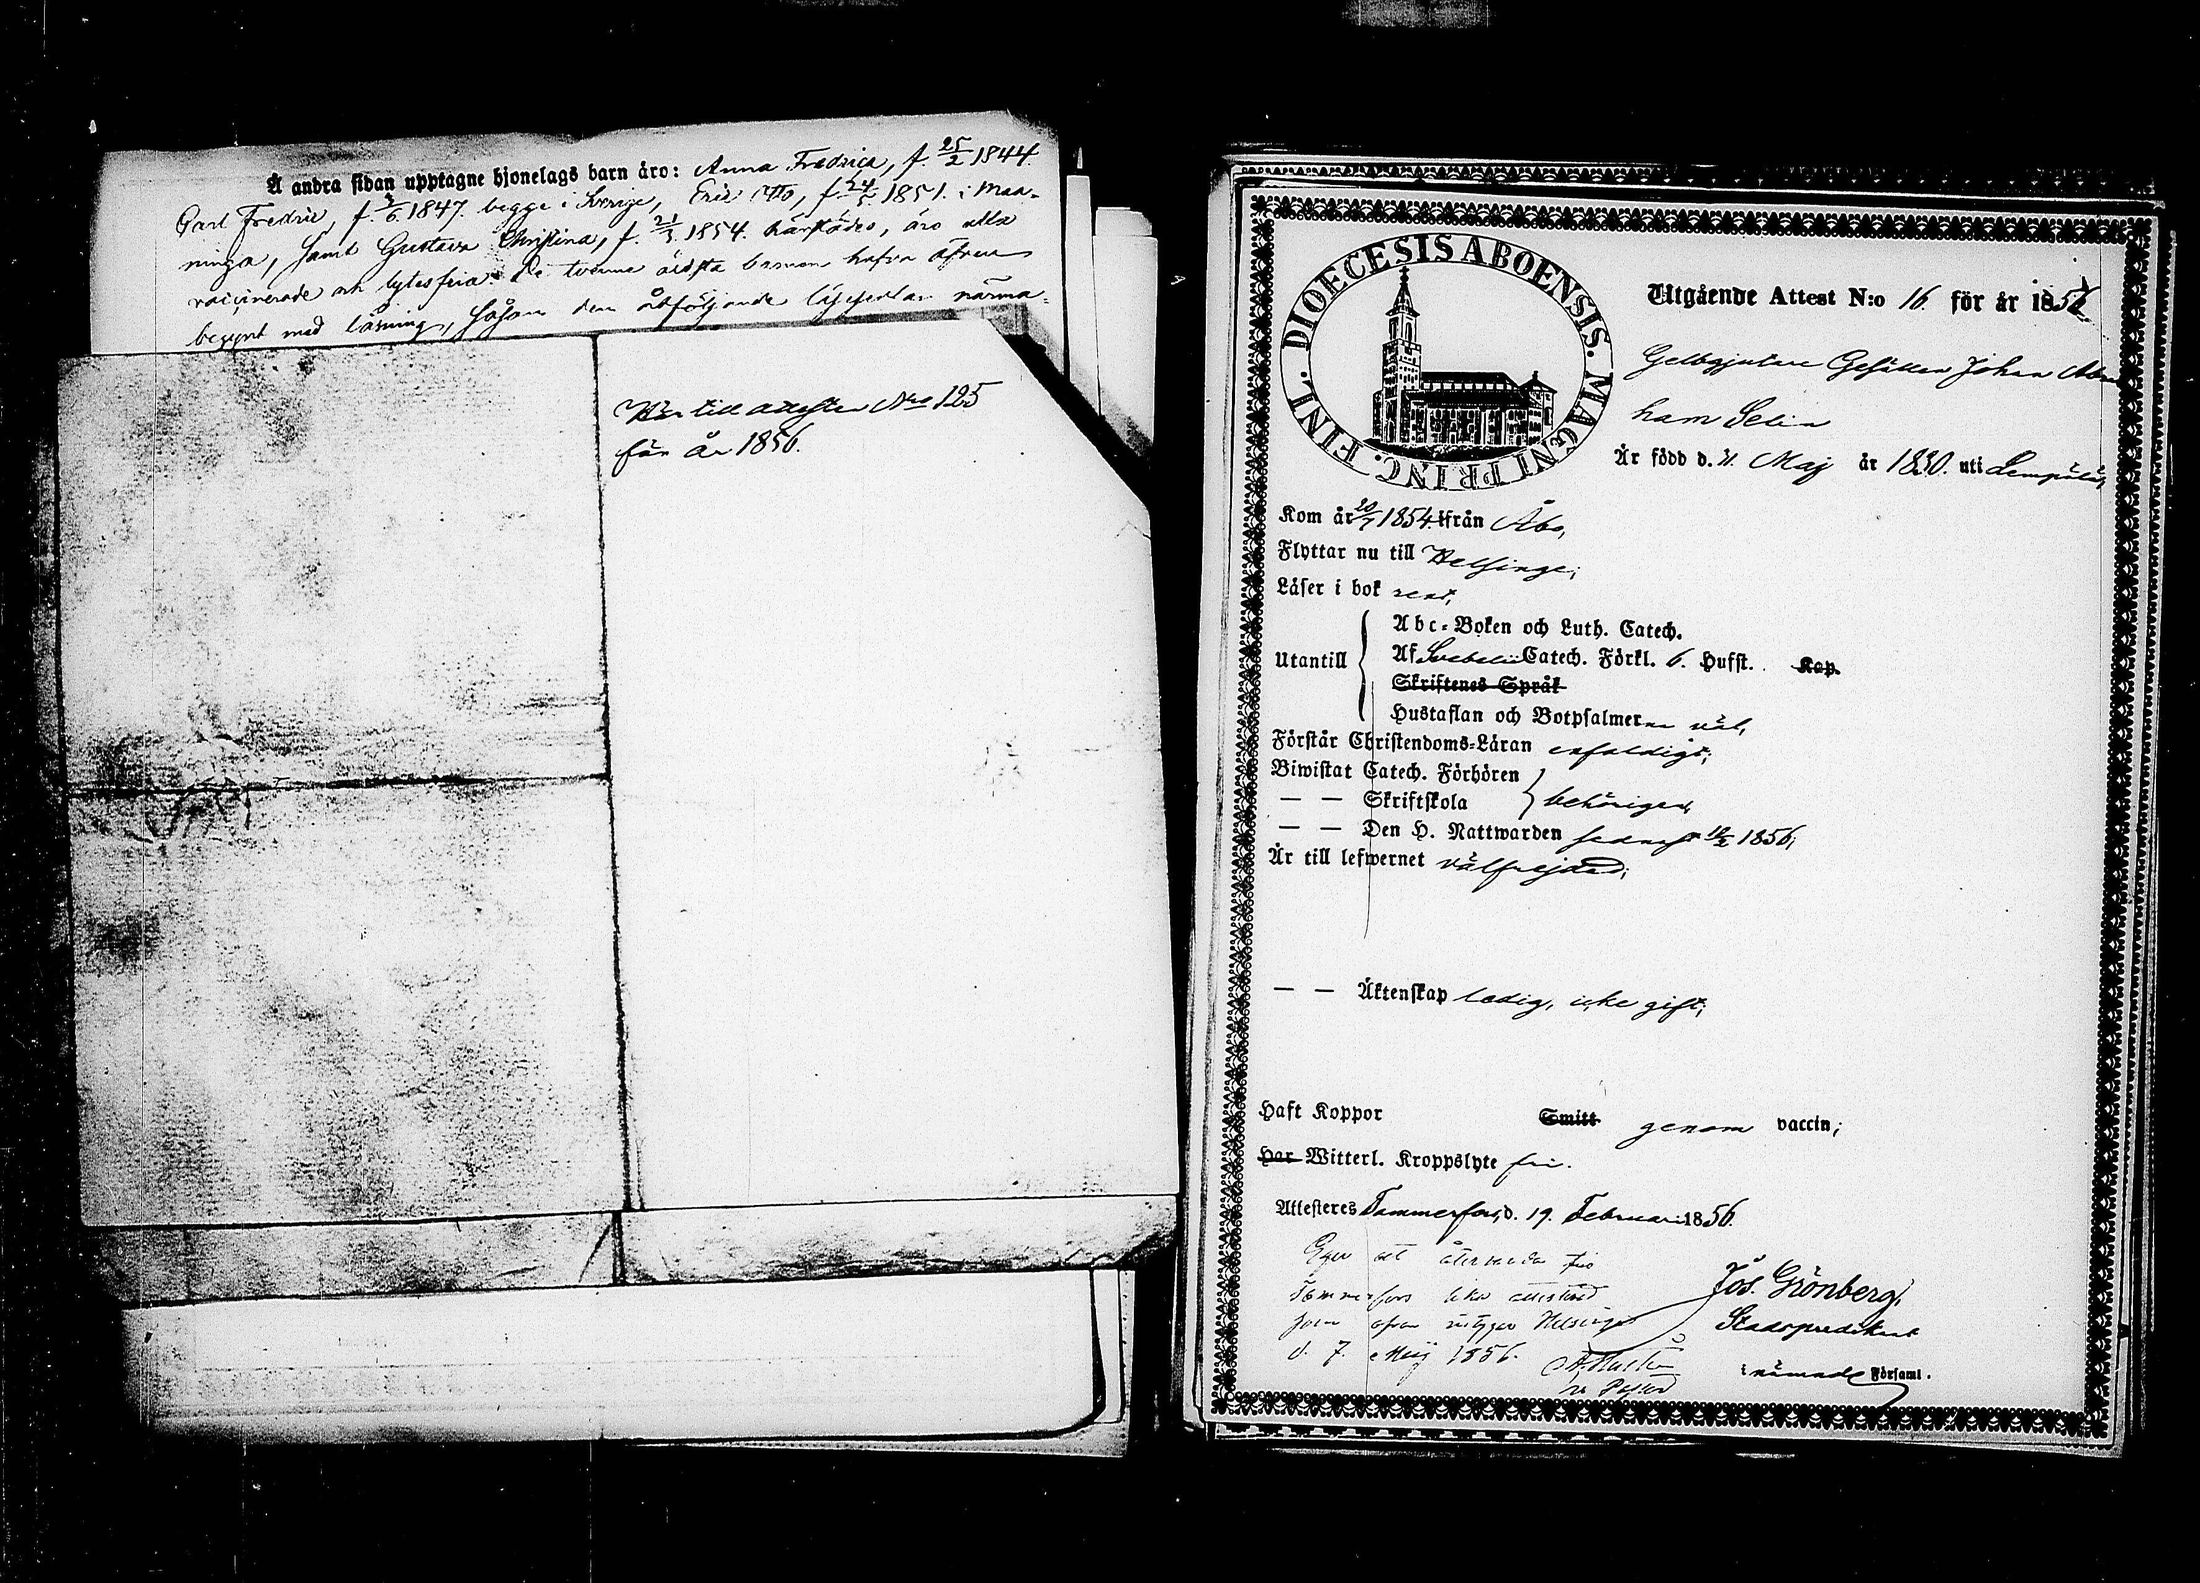 Å andra sidan upptagne hjonelags barn äro: Anna Fredrica, f. 25/2 1844.
Carl Fredric, f. 2/6 1847. begge i Sverige, Eric Otto, f. 24/5 1851. i Maa-
ninga, samt Gustava Christina, f. 21/3 1854. härstädes, äro alla
vaccinerade och lytesfria. De tvenne äldsta barnen hafva äfven
begynt med läsning, såsom den åtföljande läsesedlar närma-
Hör till attesten No 125
för år 1856.
DIOECESIS ABOENSIS. MAGNI PRINC. FINL.
Utgående Attest N:o 16. för år 1856
Gelbgjutare Gesällen Johan Abra
ham Selin
Är född d. 31. Maj år 1830. uti Lempälä,
Kom år 20/7 1854. ifrån Åbo,
Flyttar nu till Helsinge;
Läser i bok rent,
Utantill
Abc-Boken och Luth. Catech.
Af Svebelii Catech. Förkl. 6. Hufst. Kap.
Skriftenes Språk
Hustaflan och Botpsalmerna väl,
Förstår Christendoms-Läran enfaldigt;
Biwistat Catech. Förhören
— — Skriftskola behörigen,
— — Den H. Nattwarden sednast 10/2 1856;
Är till lefwernet välfrejdad;
— — Äktenskap ledig, icke gift;
Haft Koppor Smitt genom vaccin;
Har Witterl. Kroppslyte fri.
Attesteres Tammerfors, d. 19. Februari 1856.
Eger att återvända till
Tammerfors lika attesterad
som ofvan intygar Helsinge
d. 7. Maij 1856.
Jos. Grönberg,
Stadspredikant
i nämnde Församl.